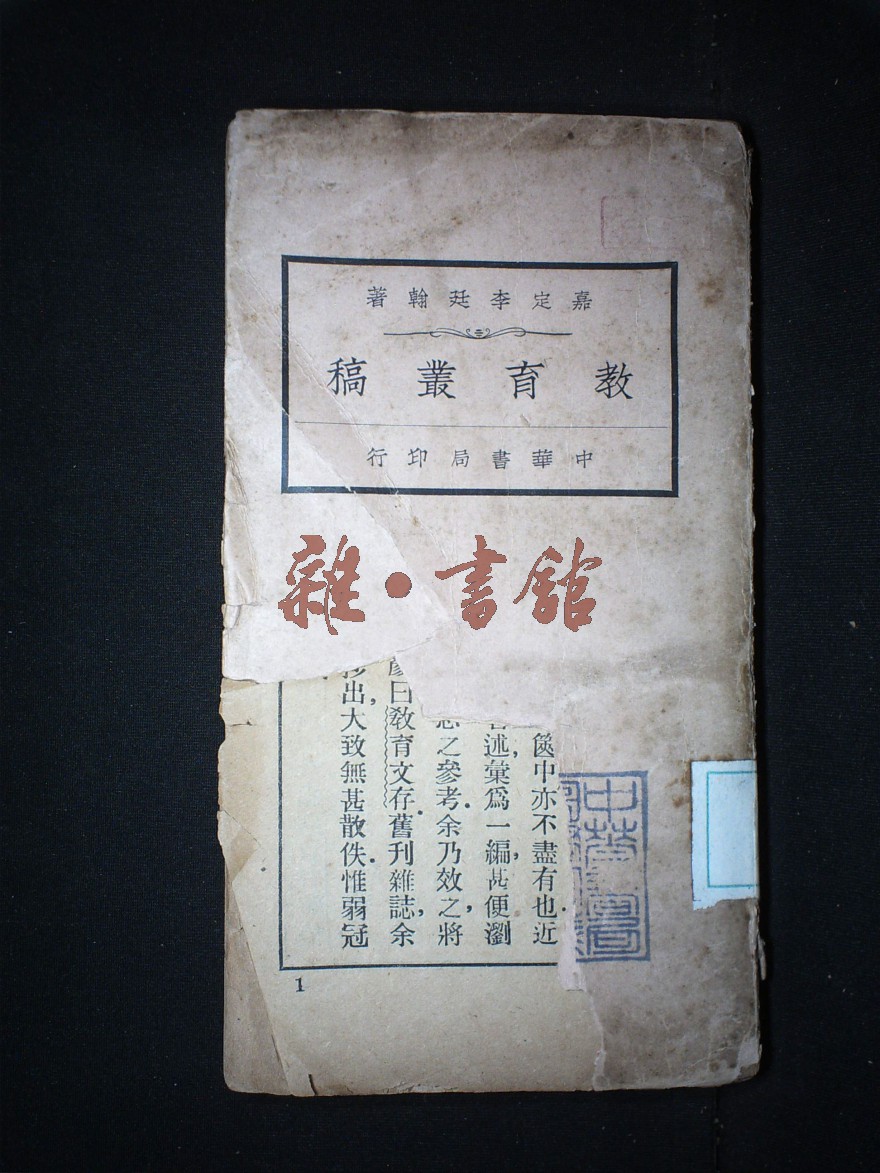 嘉定李廷翰著
教育叢稿
中華書局印行
雜·書館
篋中亦不盡有也近
述彙爲一編，甚便瀏
之參考。余乃效之，將
曰教育文存。舊刊雜誌，余
出，大致無甚散佚。惟弱冠
1
中華書局